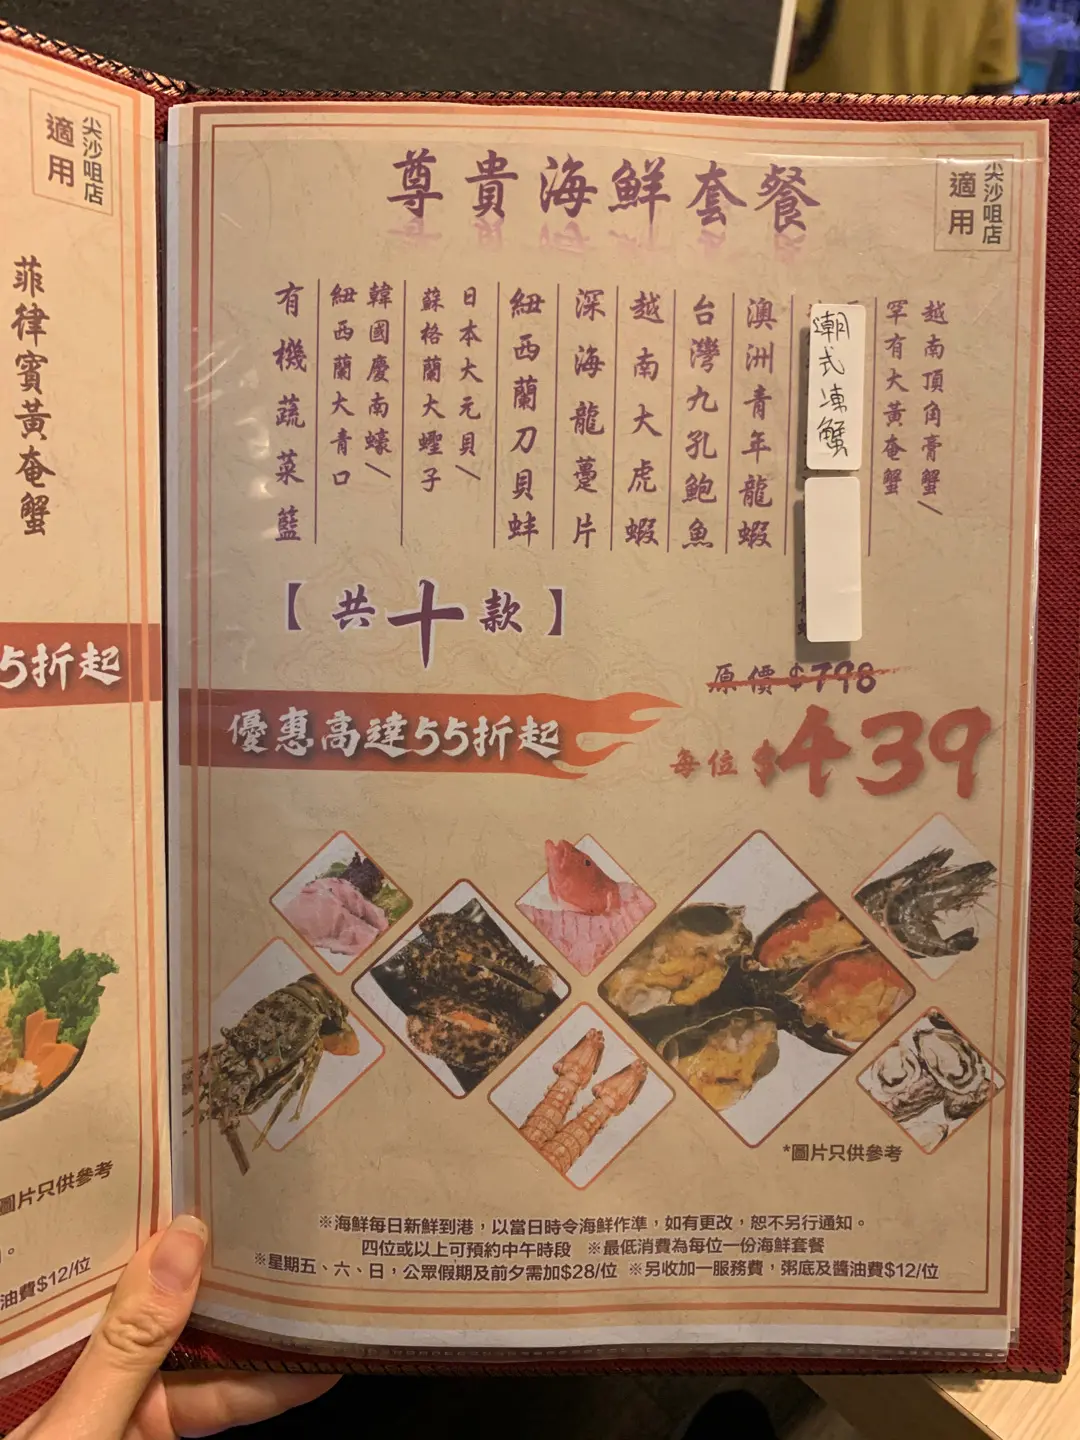 適用
尖沙咀店
菲律賓黃奄蟹
5折起
圖片只供參考
油費$12/位
尊貴海鮮套餐
適用
尖沙咀店
越南頂角膏蟹/
罕有大黃奄蟹
潮式凍蟹
澳洲青年龍蝦
台灣九孔鮑魚
越南大虎蝦
深海龍躉片
紐西蘭刀貝蚌
日本大元貝/
蘇格蘭大蟶子
韓國慶南蠔/
紐西蘭大青口
有機蔬菜籃
【共十款】
原價$798
優惠高達55折起
每位$439
*圖片只供參考
※海鮮每日新鮮到港，以當日時令海鮮作準，如有更改，恕不另行通知。
四位或以上可預約中午時段 ※最低消費為每位一份海鮮套餐
※星期五、六、日，公眾假期及前夕需加$28/位 ※另收加一服務費，粥底及醬油費$12/位